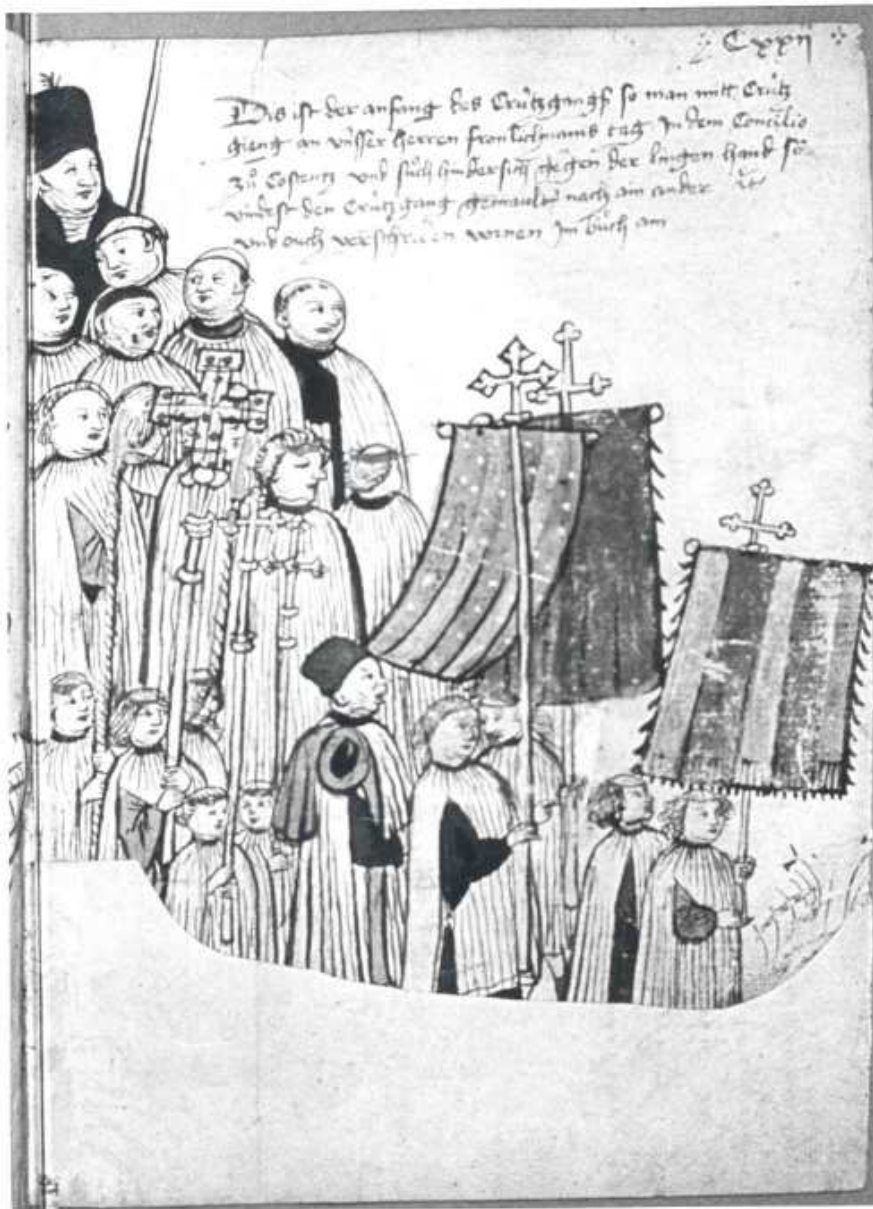 Cxxii
Dis ist der anfang des Crützgangs so man mitt Crütz
gieng an vnsser herren fronlichnams tag In dem Concilio
zů Costentz vnd sůch hindersich gegen der lingen hand so
vindest den Crützgang gemault nach ain ander
vnd ouch verschriben vornen Im bůch am